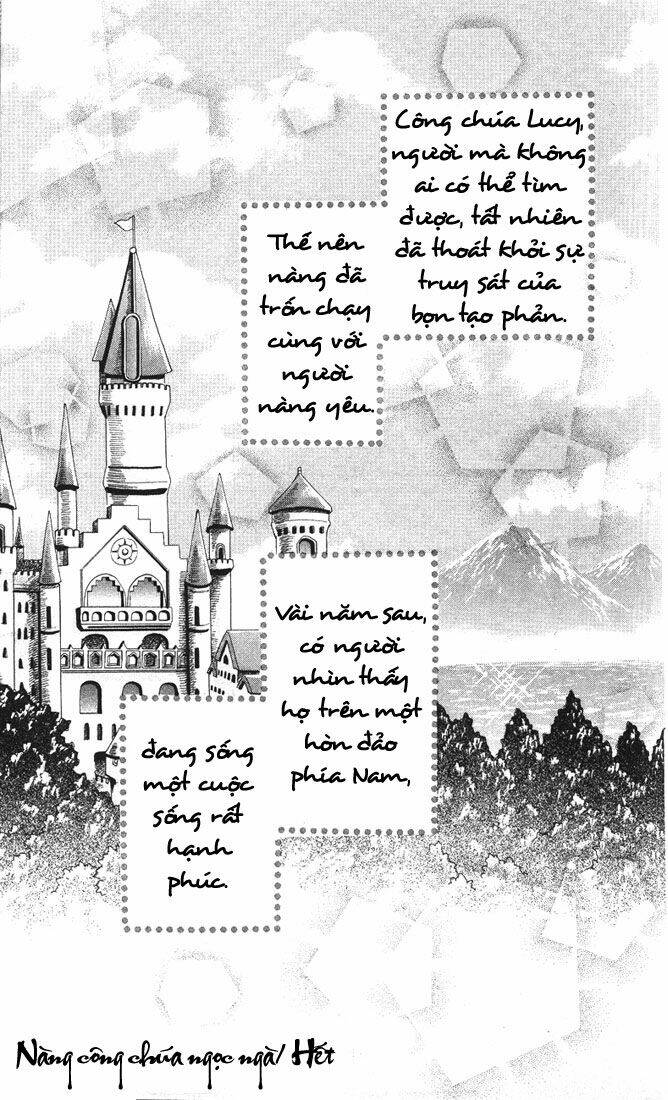 Công chúa Lucy,
người mà không
ai có thể tìm
được, tất nhiên
đã thoát khỏi sự
truy sát của
bọn tạo phản.
Thế nên
nàng đã
trốn chạy
cùng với
người
nàng yêu.
Vài năm sau,
có người
nhìn thấy
họ trên một
hòn đảo
phía Nam,
đang sống
một cuộc
sống rất
hạnh
phúc.
Nàng công chúa ngọc ngà/ Hết